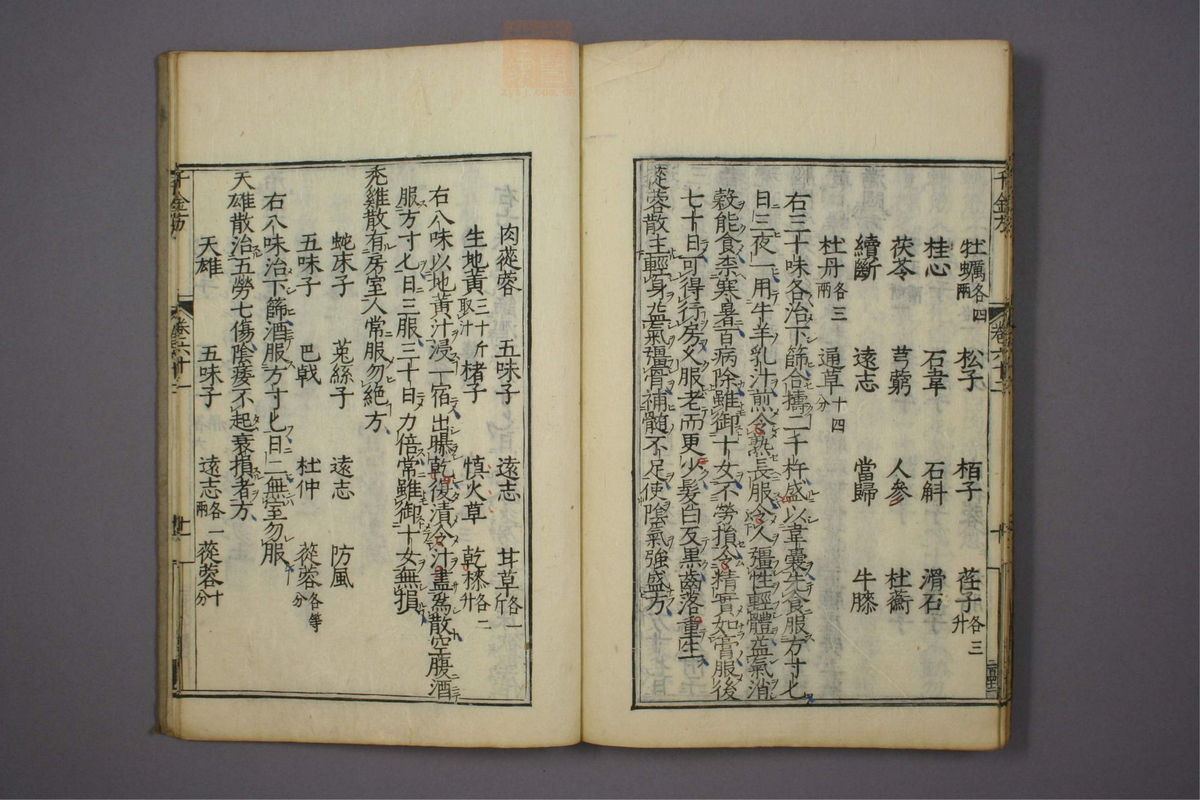 牡蠣各四兩 松子 栢子 荏子各三升
桂心 石韋 石斛 滑石
茯苓 芎藭 人參 杜蘅
續斷 遠志 當歸 牛膝
杜丹各三兩 通草十四分
右三十味各治下篩合擣二千杵盛以韋囊先食服方寸匕
日三夜一用牛羊乳汁煎令熟長服令人彊性輕體益氣消
穀能食柰寒暑百病除雖御十女不勞損令精實如膏服後
七十日可得行房久服老而更少髮白反黒齒落重生
蓯蓉散主輕身益氣彊骨補髄不足使陰氣強盛方
千金方 卷六十一 十
肉蓯蓉 五味子 遠志 甘草各一
生地黃三十斤取汁 楮子 慎火草 乾漆各二升
右八味以地黃汁浸一宿出曝乾復漬令汁盡爲散空腹酒
服方寸匕日三服三十日力倍常雖御十女無損
禿雞散有房室人常服勿絕方
蛇床子 菟絲子 遠志 防風
五味子 巴戟 杜仲 蓯蓉各等分
右八味治下篩酒服方寸匕日二無室勿服
天雄散治五勞七傷陰痿不起衰損者方
天雄 五味子 遠志各一兩 蓯蓉十分
千金方 卷六十一 十一